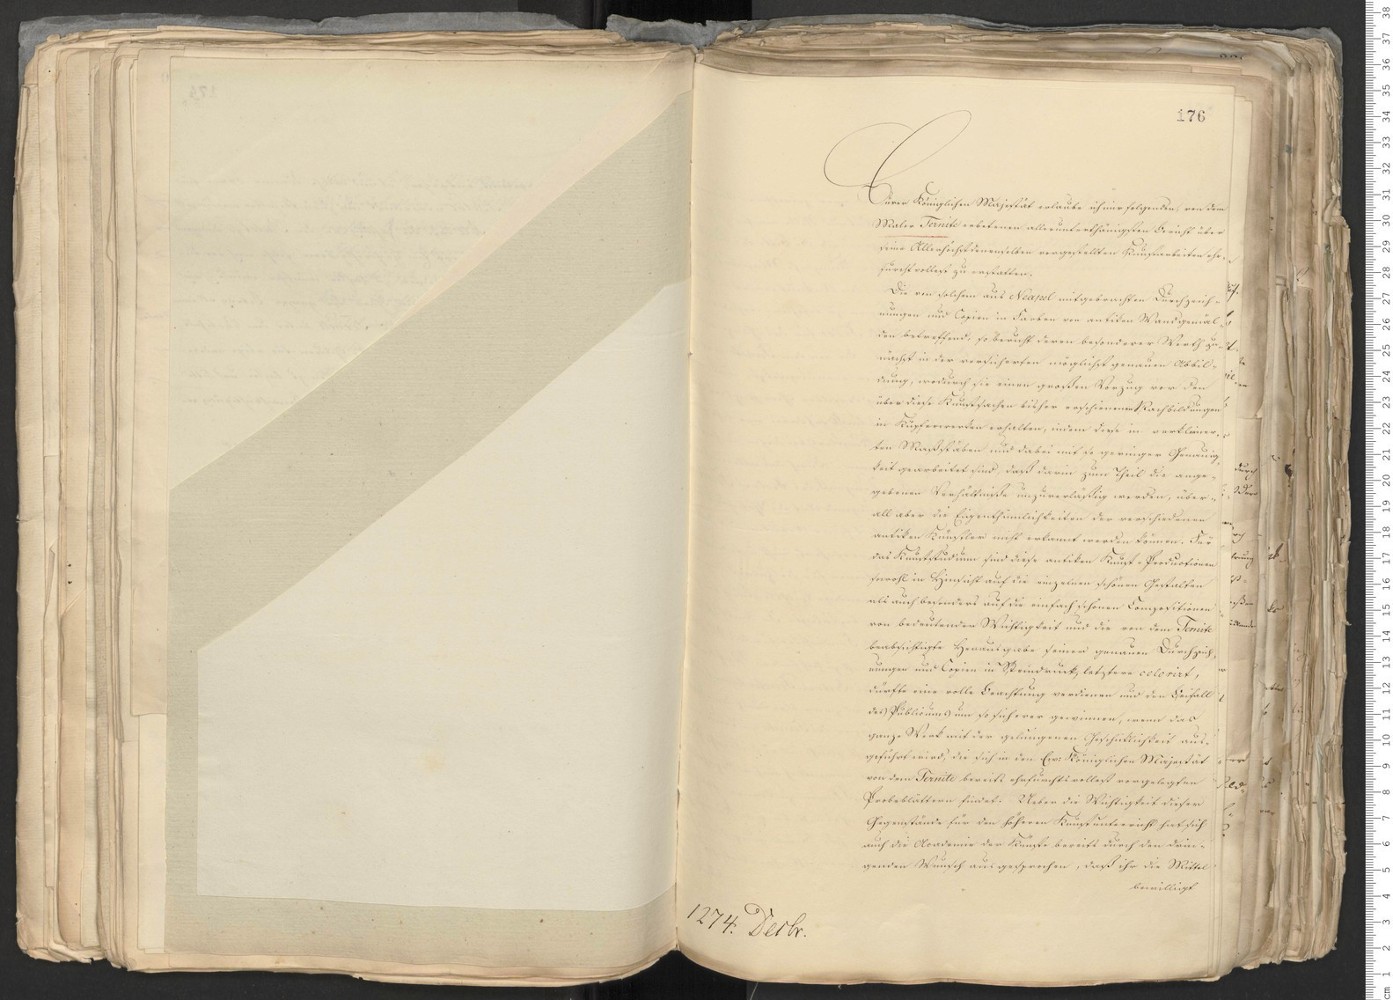 176
Eurer Königlichen Majestät erlaube ich mir folgenden, von dem
Maler Ternite erbetenen allerunterthänigsten Bericht über
seine Allerhöchstdenenselben vorgestellten Kunstarbeiten ehr-
furchtvollest zu erstatten.
Die von solchem aus Neapel mitgebrachten Durchzeich-
nungen und Copien in Farben von antiken Wandgemäl-
den betreffend, so beruht deren besonderer Werth zu-
nächst in der versicherten möglichst genauen Abbil-
dung, wodurch sie einen großen Vorzug vor den
über diese Kunstsachen bisher erschienenen Nachbildungen
in Kupferwerken erhalten, indem diese in verkleiner-
ten Maßstäben und dabei mit so geringer Genauig-
keit gearbeitet sind, daß darin zum Theil die ange-
gebenen Verhältnisse unzuverlässig werden, über-
all aber die Eigenthümlichkeiten der verschiedenen
antiken Künstler nicht erkannt werden können. Für
das Kunststudium sind diese antiken Kunst-Productionen
sowohl in Hinsicht auf die einzelnen schönen Gestalten
als auch besonders auf die einfach schönen Compositionen
von bedeutender Wichtigkeit und die von dem Ternite
beabsichtigte Herausgabe seiner genauen Durchzeich-
nungen und Copien in Steindruck, letztere colorirt,
dürfte eine volle Beachtung verdienen und den Beifall
des Publicums um so sicherer gewinnen, wenn das
ganze Werk mit der gelungenen Geschicklichkeit aus-
geführt wird, die sich in den Ew: Königlichen Majestät
von dem Ternite bereits ehrfurchtsvollest vorgelegten
Probeblättern findet. Ueber die Wichtigkeit dieser
Gegenstände für den höheren Kunstunterricht hat sich
auch die Academie der Künste bereits durch den drin-
genden Wunsch ausgesprochen, daß ihr die Mittel
bewilligt
1274. Decbr.